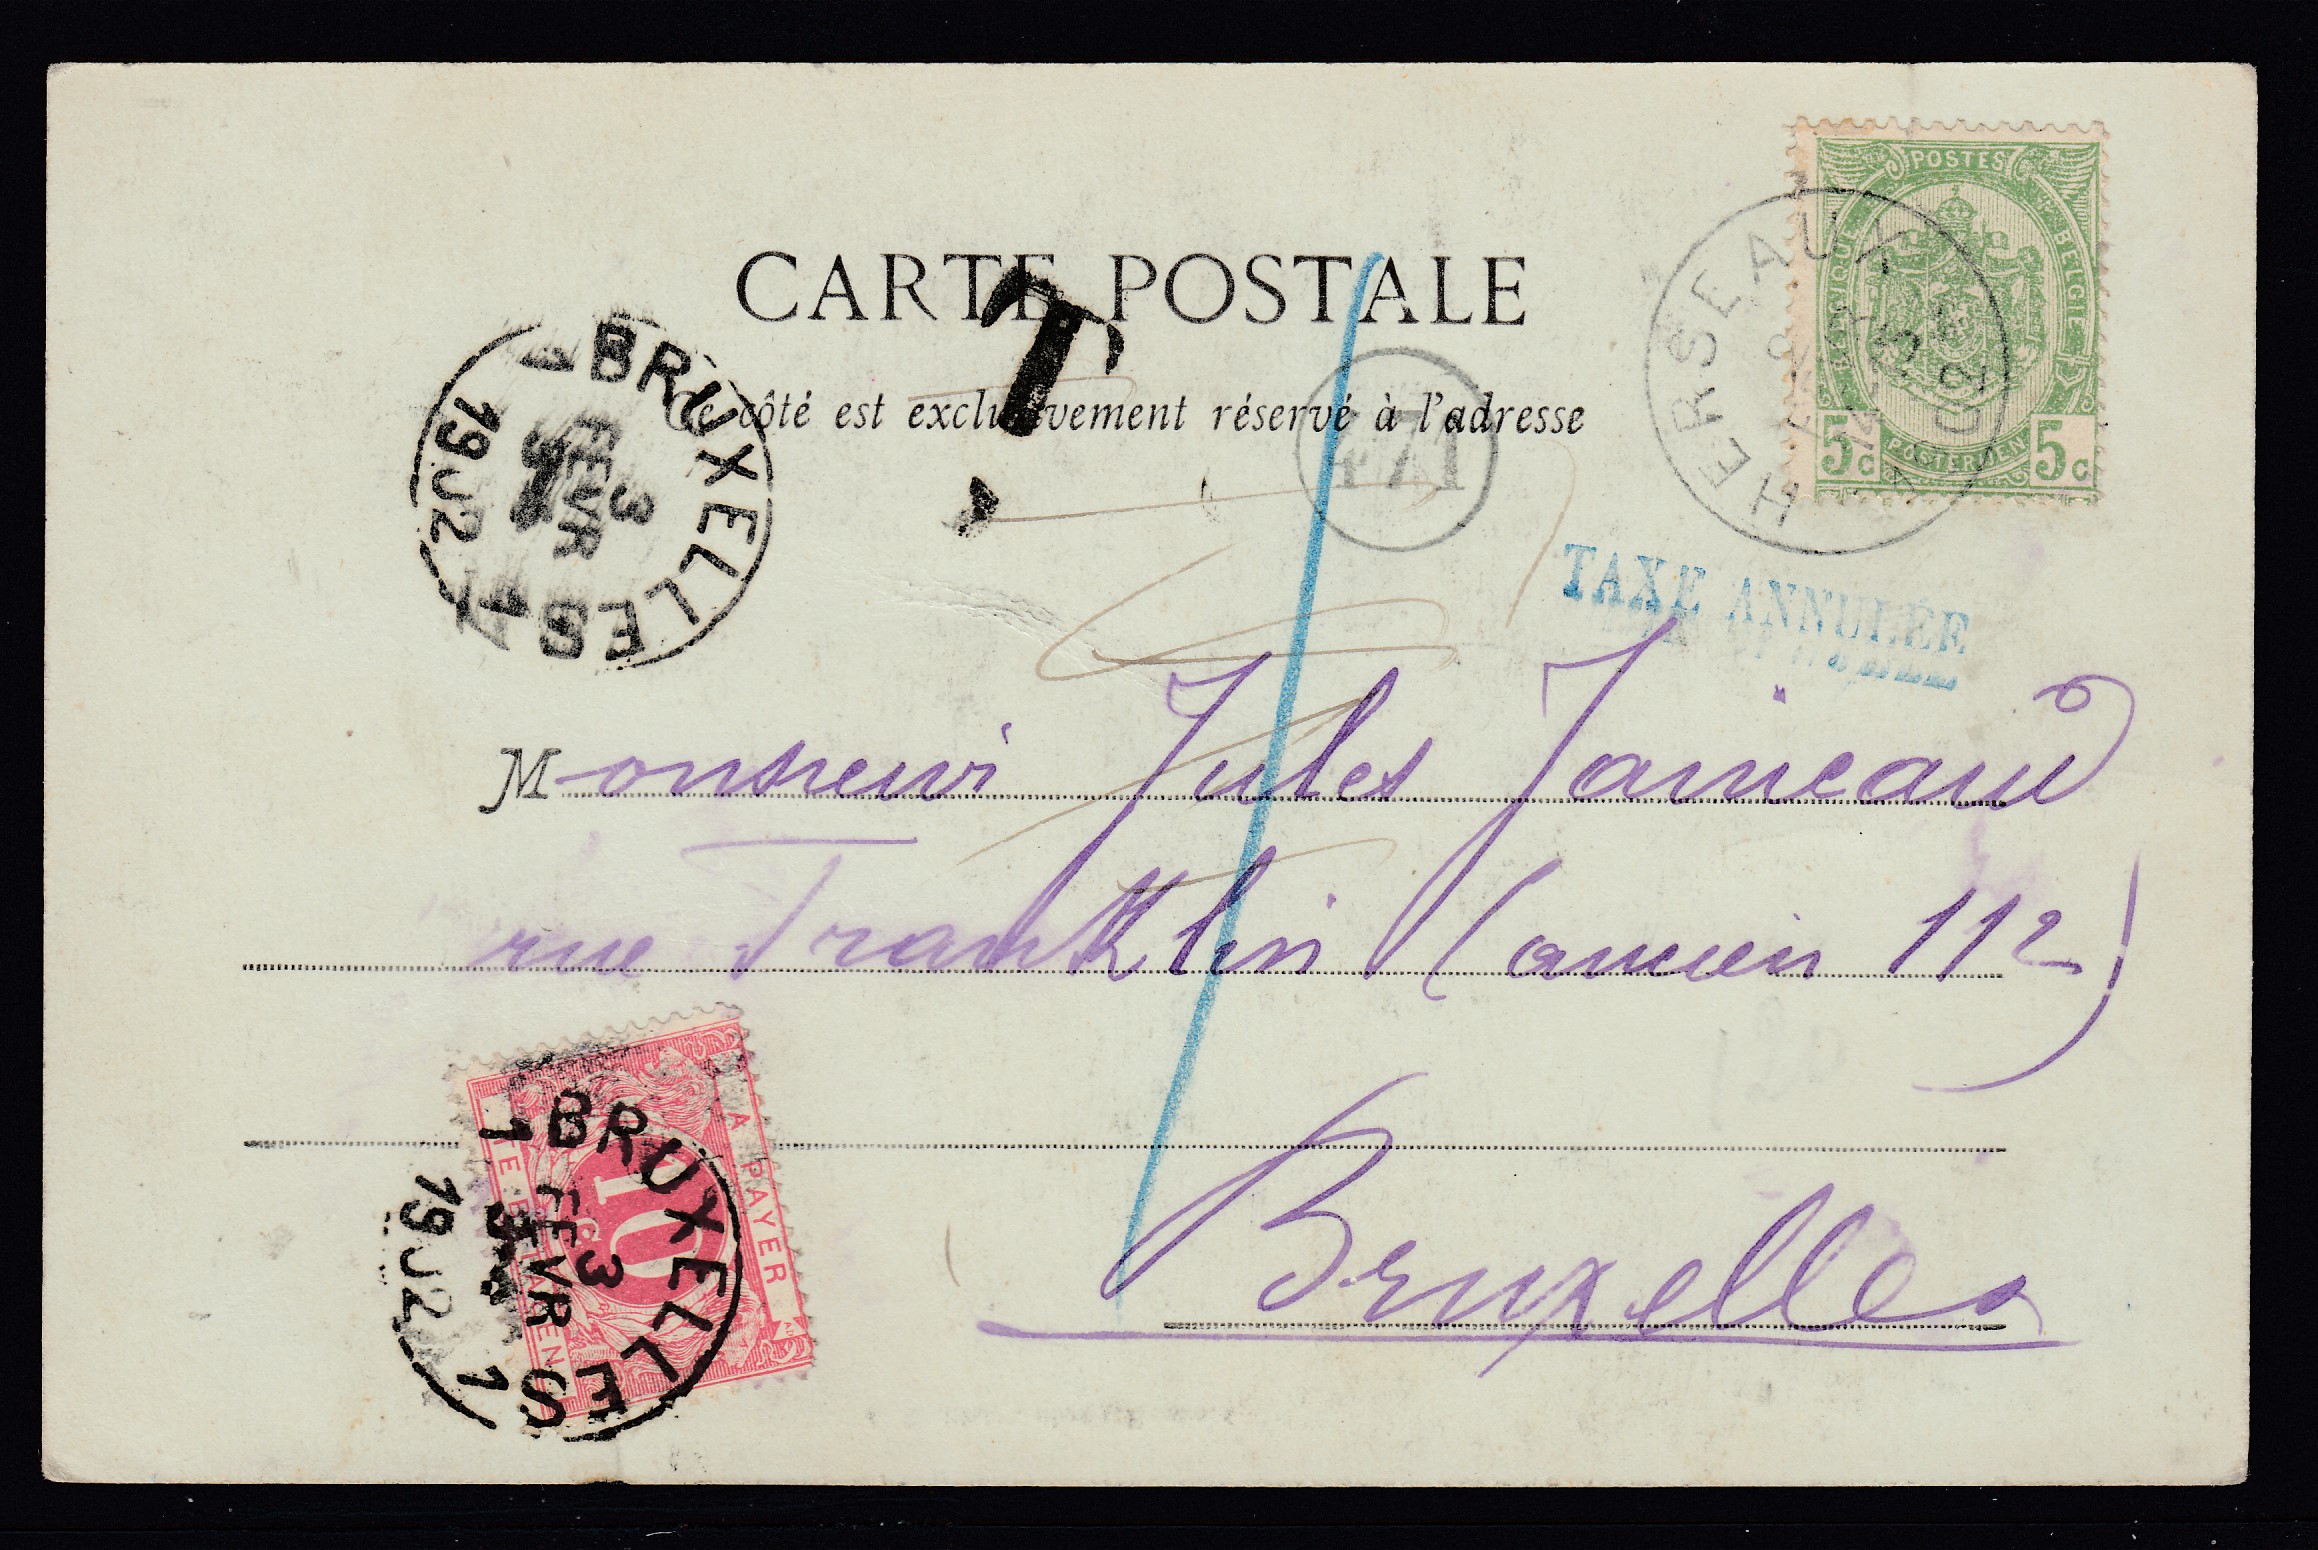 POSTES
BELGIQUE
BELGIE
5 c
POSTERIJEN
5 c
HERSEAUX
CARTE POSTALE
T
Ce côté est exclusivement réservé à l'adresse
471
BRUXELLES
3
FEVR
19J2
TAXE ANNULÉE
Monsieur Jules
rue Franklin (ancien 112)
Bruxelles
A PAYER
10 c
TE BETALEN
BRUXELLES 1
3
FEVR
19J2
1